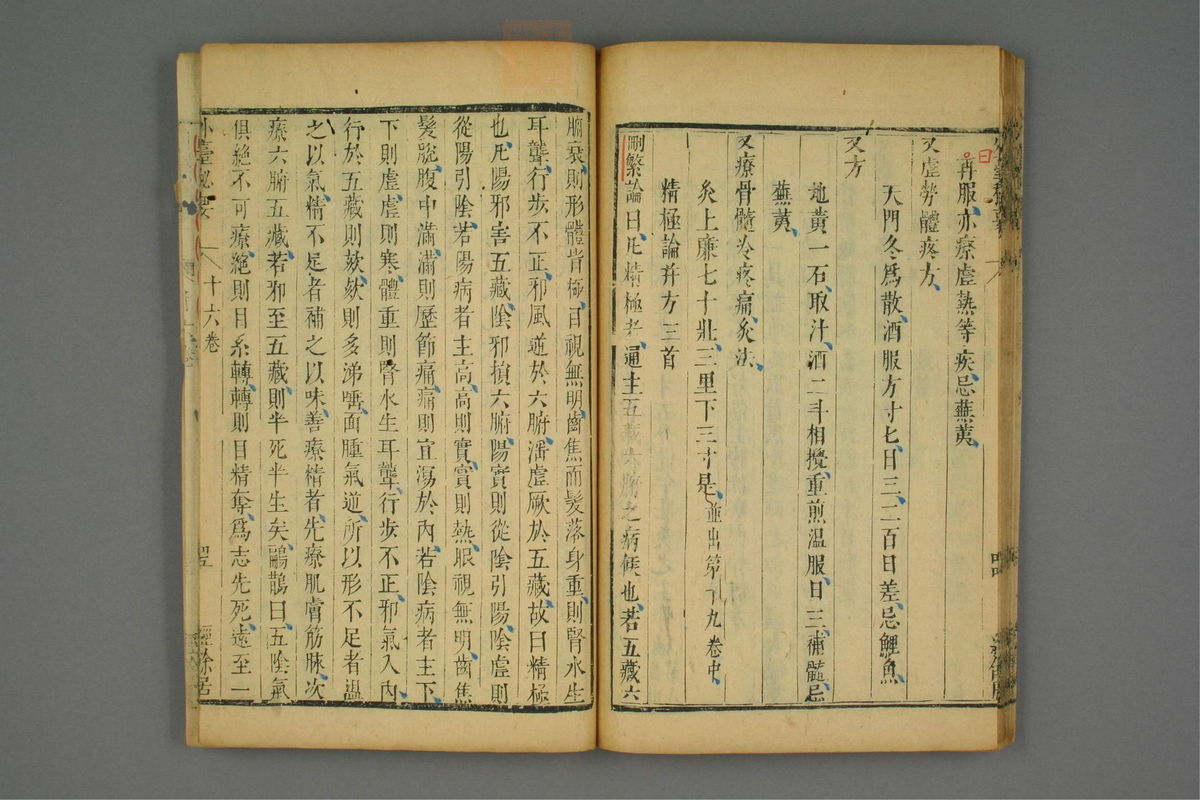 日再服亦療虛熱等疾忌蕪荑
又虛勞體疼方
天門冬爲散酒服方寸匕日三二百日差忌鯉魚
又方
地黃一石取汁酒二斗相攪重煎溫服日三補髓忌
蕪荑
又療骨髓冷疼痛灸法
灸上廉七十壯三里下三寸是並出第十九卷中
精極論并方三首
刪繁論曰凡精極者通主五藏六腑之病候也若五藏六
腑衰則形體皆極目視無明齒焦而髮落身重則腎水生
耳聾行步不正邪風逆於六腑潘虛厥於五藏故曰精極
也凡陽邪害五藏陰邪損六腑陽實則從陰引陽陰虛則
從陽引陰若陽病者主高高則實實則熱眼視無明齒焦
髮脫腹中滿滿則歷節痛痛則宜瀉於內若陰病者主下
下則虛虛則寒體重則腎水生耳聾行步不正邪氣入內
行於五藏則欬欬則多涕唾面腫氣逆所以形不足者溫
之以氣精不足者補之以味善療精者先療肌膚筋脉次
療六腑五藏若邪至五藏則半死半生矣鶣鵲曰五陰氣
俱絕不可療絕則目系轉轉則目精奪爲志先死遠至一
外臺祕要 十六卷 經餘居